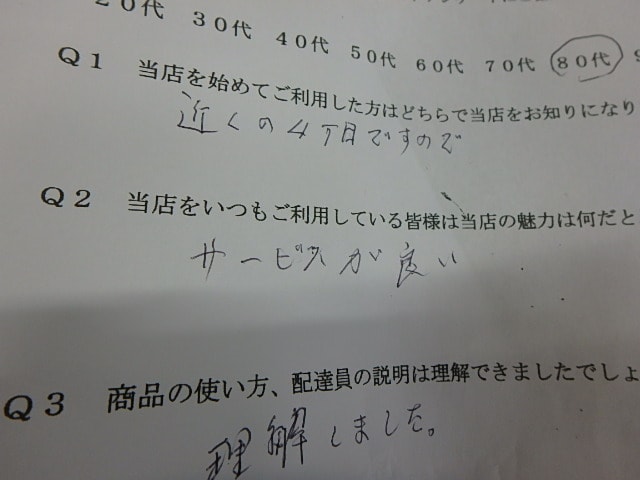 20代 30代 40代 50代 60代 70代 80代 9
Q1 当店を始めてご利用した方はどちらで当店をお知りになり
近くの4丁目ですので
Q2 当店をいつもご利用している皆様は当店の魅力は何だと
サービスが良い
Q3 商品の使い方、配達員の説明は理解できましたでしょ
理解しました。